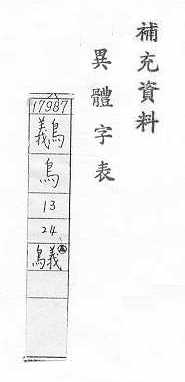 補充資料
異體字表
17987
鸃
鳥
13
24